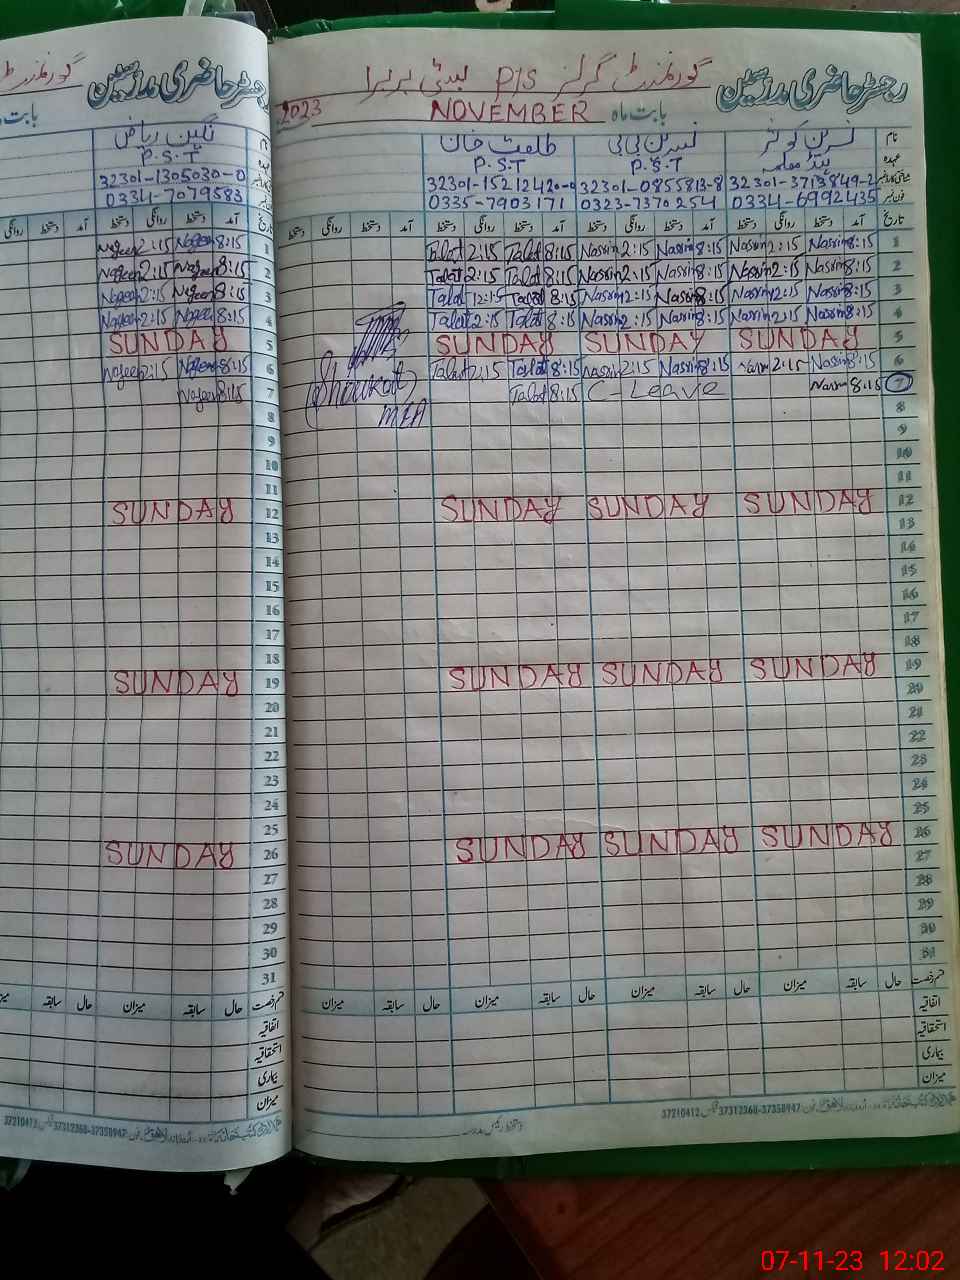 رجسٹر حاضری مدرسین
گورنمنٹ گرلز P/S بستی بربرا
بابت ماہ NOVEMBER 2023
نام نسرین کوثر نسرین بی بی طلعت خان
عہدہ ہیڈ معلمہ P.S.T P.S.T
32301-3713849-2 32301-0855813-8 32301-1521242-0
فون نمبر 0334-6992435 0323-7370254 0335-7903171
تاریخ آمد دستخط روانگی دستخط آمد دستخط روانگی دستخط آمد دستخط روانگی دستخط آمد دستخط روانگی دستخط
1 8:15 Nasrin 2:15 Nasrin 8:15 Nasrin 2:15 Nasrin 8:15 Talat 2:15 Talat
2 8:15 Nasrin 2:15 Nasrin 8:15 Nasrin 2:15 Nasrin 8:15 Talat 2:15 Talat
3 8:15 Nasrin 2:15 Nasrin 8:15 Nasrin 2:15 Nasrin 8:15 Talat 12:15 Talat
4 8:15 Nasrin 2:15 Nasrin 8:15 Nasrin 2:15 Nasrin 8:15 Talat 2:15 Talat
5 SUNDAY SUNDAY SUNDAY
6 8:15 Nasrin 2:15 Nasrin 8:15 Nasrin 2:15 Nasrin 8:15 Talat 2:15 Talat
7 8:15 Nasrin C-Leave 8:15 Talat
Shoukat
MEA
8
9
10
11
12 SUNDAY SUNDAY SUNDAY
13
14
15
16
17
18
19 SUNDAY SUNDAY SUNDAY
20
21
22
23
24
25
26 SUNDAY SUNDAY SUNDAY
27
28
29
30
31
قسم رخصت حال سابقہ میزان حال سابقہ میزان حال سابقہ میزان حال سابقہ میزان
اتفاقیہ
استحقاقیہ
بیماری
میزان
37210412 37312360-37350947
دستخط رئیس مدرسہ
رجسٹر حاضری مدرسین
گورنمنٹ
بابت ماہ
نام نگین ریاض
عہدہ P.S.T
32301-1305030-0
فون نمبر 0334-7079583
تاریخ آمد دستخط روانگی دستخط آمد دستخط روانگی
1 8:15 Nageen 2:15 Nageen
2 8:15 Nageen 2:15 Nageen
3 8:15 Nageen 2:15 Nageen
4 8:15 Nageen 2:15 Nageen
5 SUNDAY
6 8:15 Nageen 2:15 Nageen
7 8:15 Nageen
8
9
10
11
12 SUNDAY
13
14
15
16
17
18
19 SUNDAY
20
21
22
23
24
25
26 SUNDAY
27
28
29
30
31
قسم رخصت حال سابقہ میزان حال سابقہ
اتفاقیہ
استحقاقیہ
بیماری
میزان
37210412 37312360-37350947
07-11-23 12:02